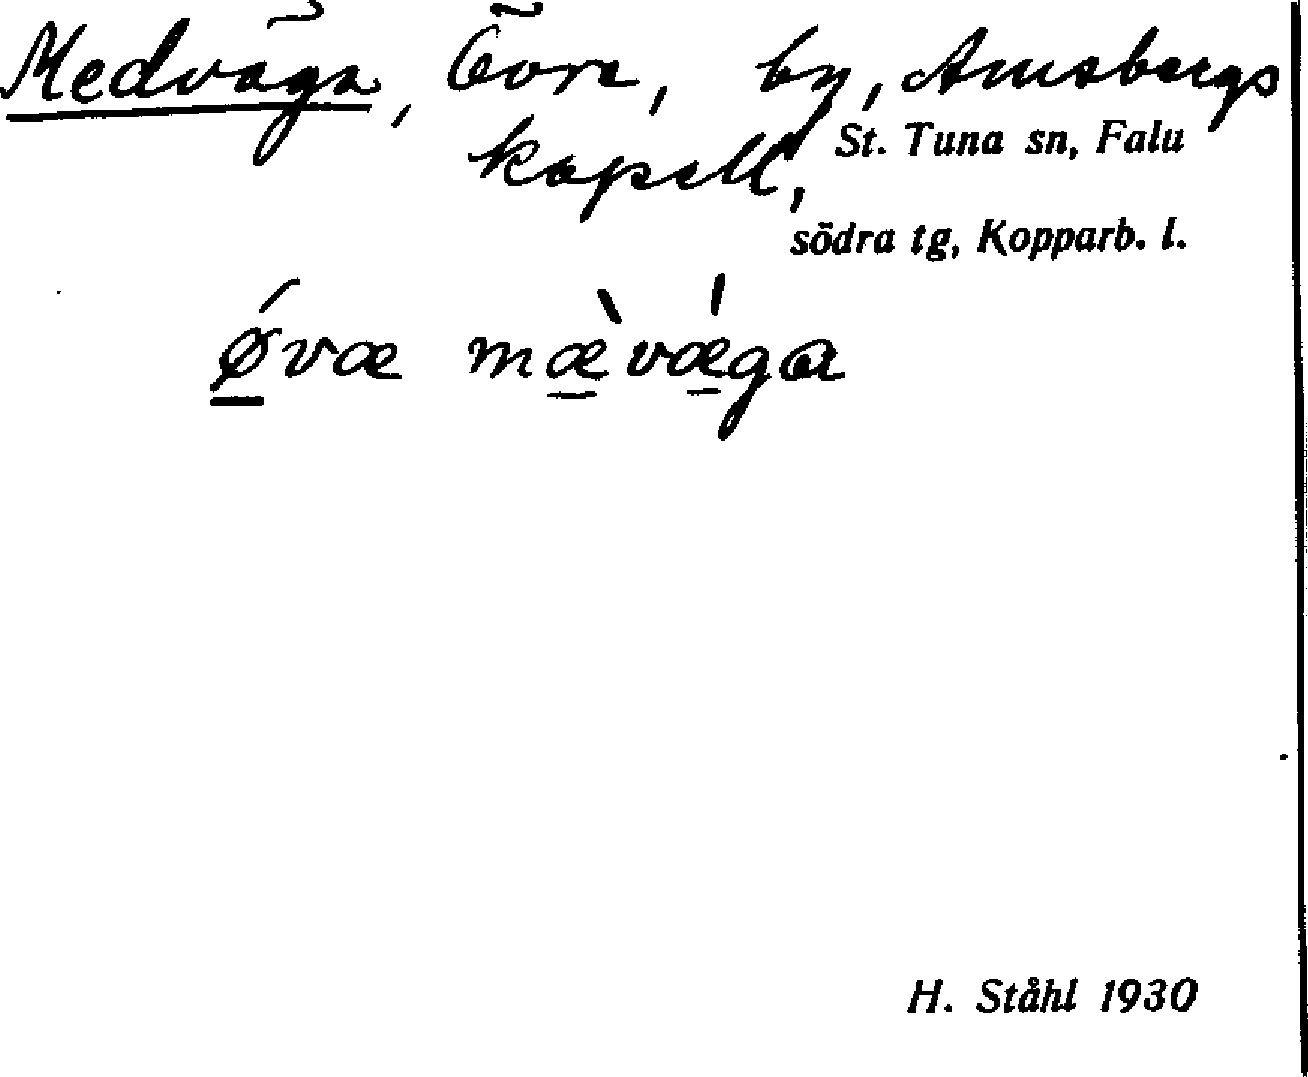 Medväga, Övre, by, Amsbergs
kapell, St. Tuna sn, Falu
södra tg, Kopparb. l.
ǿvæ mæ̀vǽga
H. Ståhl 1930